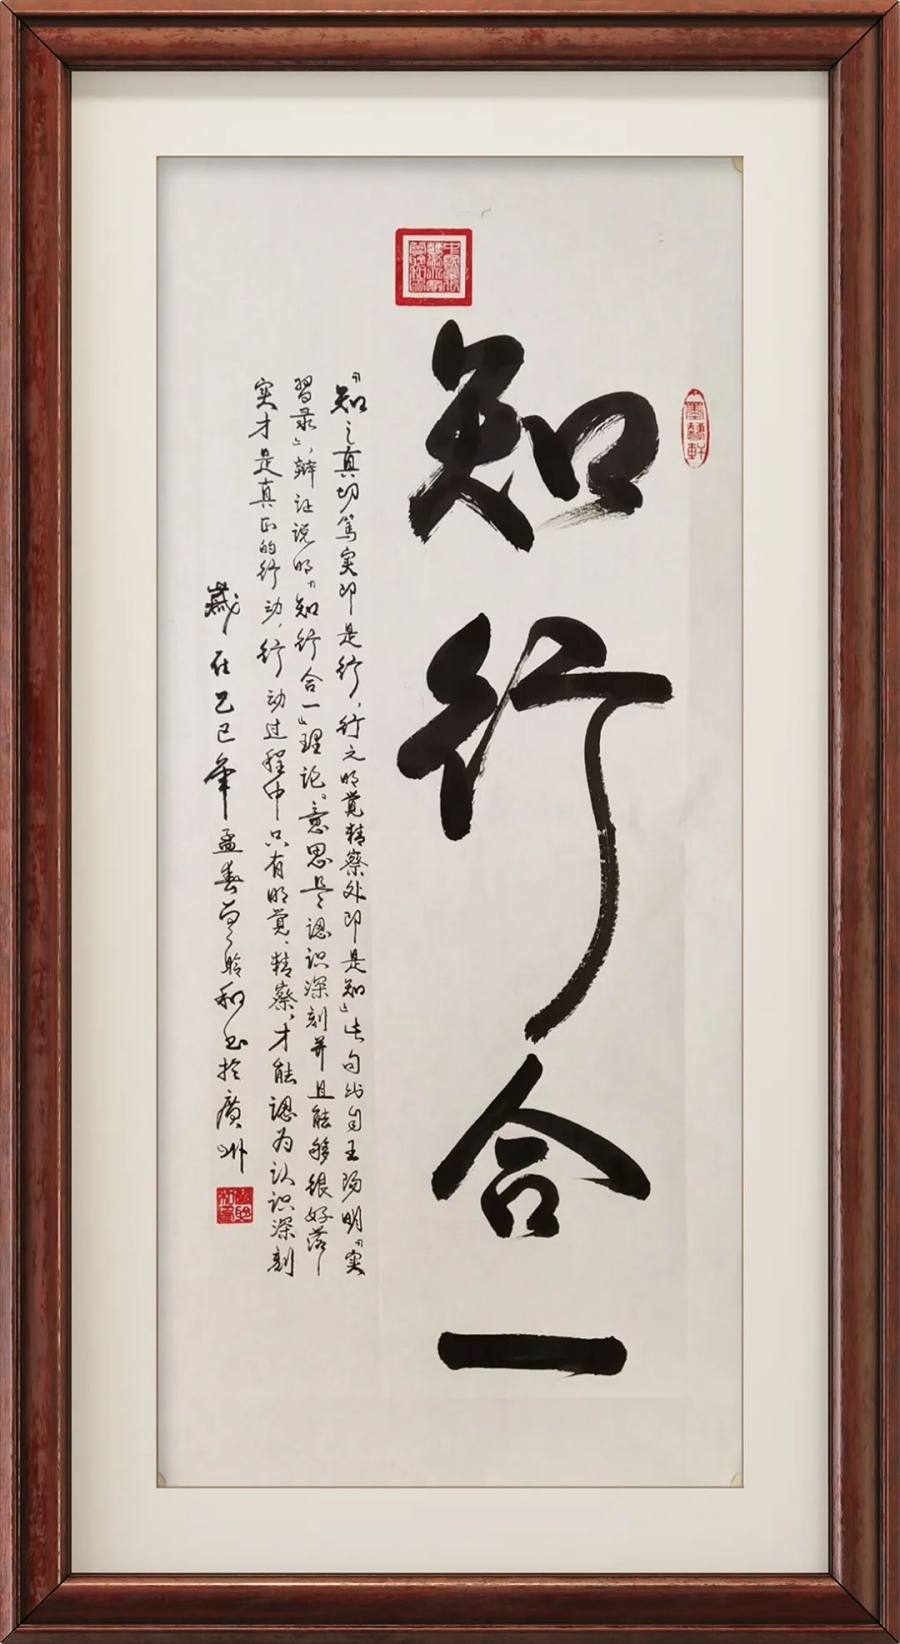 知行合一
“知之真切笃实即是行，行之明觉精察处即是知”此句出自王阳明“实
習录”，辩证说明“知行合一”理论。意思是認识深刻并且能够很好落
实才是真正的行动，行动过程中只有明覚、精察，才能認为认识深刻
歲在乙巳年孟春曾聆和书於廣州